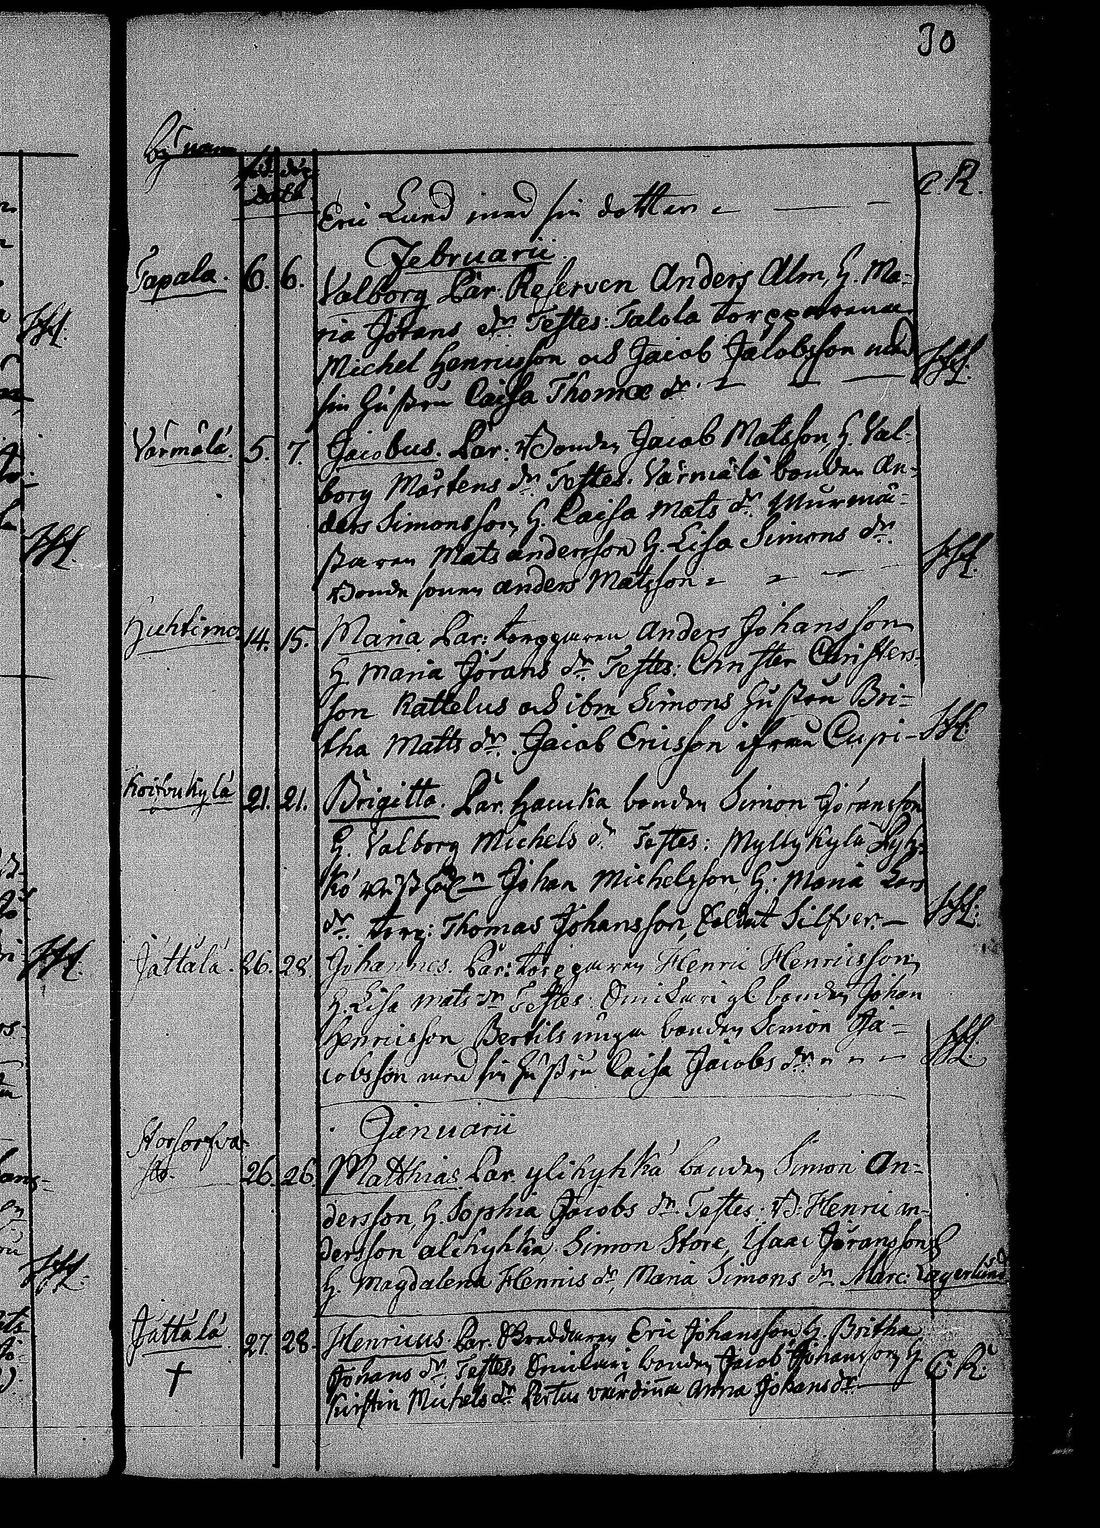 30
By namn
föd. döp.
dato
Eric Lund med sin dotter C. K.
Februarii
Tapala. 6. 6. Valborg Par. Reserven Anders Alm, H. Ma-
ria Jörans dr Testes: Talola torpparenar
Michel Henricsson och Jacob Jacobsson med
sin hustru Caisa Thomæ dr
Värmälä. 5. 7. Jacobus. Par: Bonden Jacob Matsson, H. Val-
borg Mårtens dr Testes. Värmälä bonden An-
ders Simonsson, H. Caisa Mats dr. Murmä-
staren Mats andersson H. Lisa Simons dr.
Bonde sonen anders Matsson
Huhtimo. 14. 15. Maria. Par: torpparen Anders Johansson
H. Maria Jörans dr Testes: Christer Christers-
son Kattelus och ibm Simons hustru Bri-
tha Matts dr. Jacob Ericsson ifrån Cupi-
Koifvukylä 21. 21. Brigitta. Par. Hauka bonden Simon Jöransson
H. Valborg Michels dr Testes: Myllykylä
Johan Michelsson, H. Maria Lars
dr. torp: Thomas Johansson, Soldat Silfver.
Jättälä. 26. 28. Johannes. Par: torpparen Henric Henricsson
H. Lisa Mats dr Testes: bonden Johan
Henricsson Bertils bonden Simon Ja-
cobsson med sin hustru Caisa Jacobs dr
Januarii
Storsorfva-
sto. 26. 26. Matthias Par. ylihyhkä bonden Simon An-
dersson, H. Sophia Jacobs dr. Testes: B: Henric an-
dersson alihyhkä Simon Store, Isaac Jöransson &
H. Magdalena Henrics dr, Maria Simons dr. Marc: Lagerlund
Jättälä 27. 28. Henricus. Par. Skräddaren Eric Johansson, H. Britha
Johans dr, Testes bonden Jacob Johansson, H. C: K:
Kirstin Michels dr. Pertus värdinna Anna Johans dr